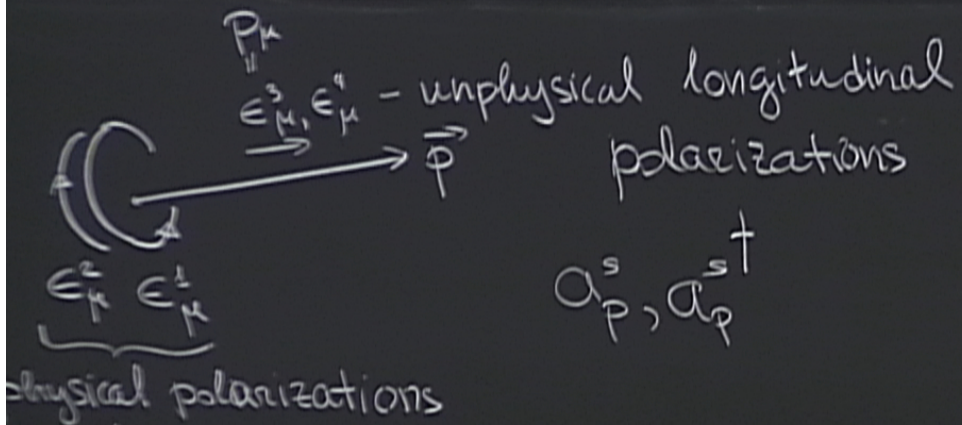 Pμ
||
ϵ³μ, ϵ⁴μ – unphysical longitudinal
polarizations
p⃗
ϵ²μ ϵ¹μ
physical polarizations
aˢₚ, aˢₚ†